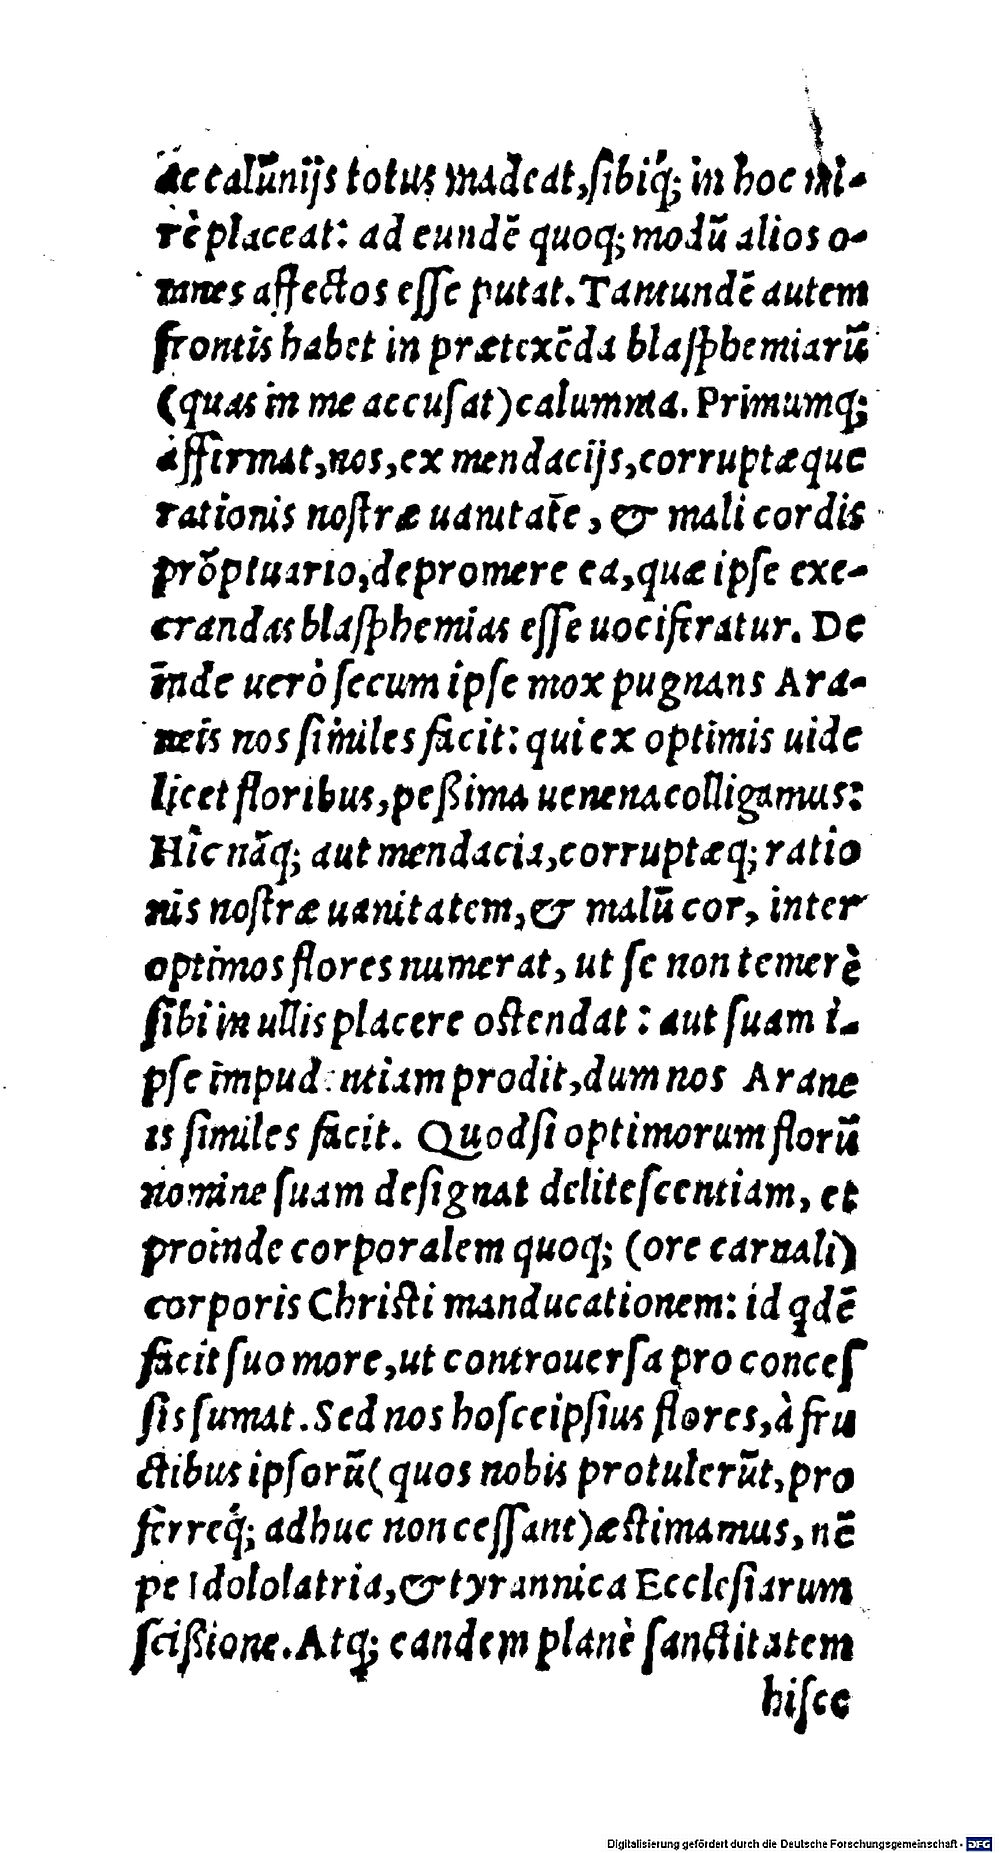 ac calũnijs totus madeat, ſibiq́; in hoc mi-
rè placeat: ad eundẽ quoq; modũ alios o-
mnes affectos eſſe putat. Tantundẽ autem
frontis habet in prætexẽda blaſphemiarũ
(quas in me accuſat) calumnia. Primumq;
affirmat, nos, ex mendacijs, corruptæque
rationis noſtræ uanitatẽ, & mali cordis
prõptuario, depromere ea, quæ ipſe exe-
crandas blaſphemias eſſe uociferatur. De
inde uerò ſecum ipſe mox pugnans Ara-
neis nos ſimiles facit: qui ex optimis uide
licet floribus, peßima uenena colligamus:
Hîc nãq; aut mendacia, corruptæq; ratio
nis noſtræ uanitatem, & malũ cor, inter
optimos flores numerat, ut ſe non temerè
ſibi in ullis placere oſtendat: aut ſuam i-
pſe impudentiam prodit, dum nos Arane
is ſimiles facit. Quodſi optimorum florũ
nomine ſuam deſignat deliteſcentiam, et
proinde corporalem quoq; (ore carnali)
corporis Chriſti manducationem: id qdẽ
facit ſuo more, ut controuerſa pro conceſ
ſis ſumat. Sed nos hoſce ipſius flores, à fru
ctibus ipſorũ (quos nobis protulerũt, pro
ferreq́; adhuc non ceſſant) æſtimamus, nẽ
pe Idololatria, & tyrannica Eccleſiarum
ſcißione. Atq; eandem planè ſanctitatem
hiſce
Digitalisierung gefördert durch die Deutsche Forschungsgemeinschaft - DFG